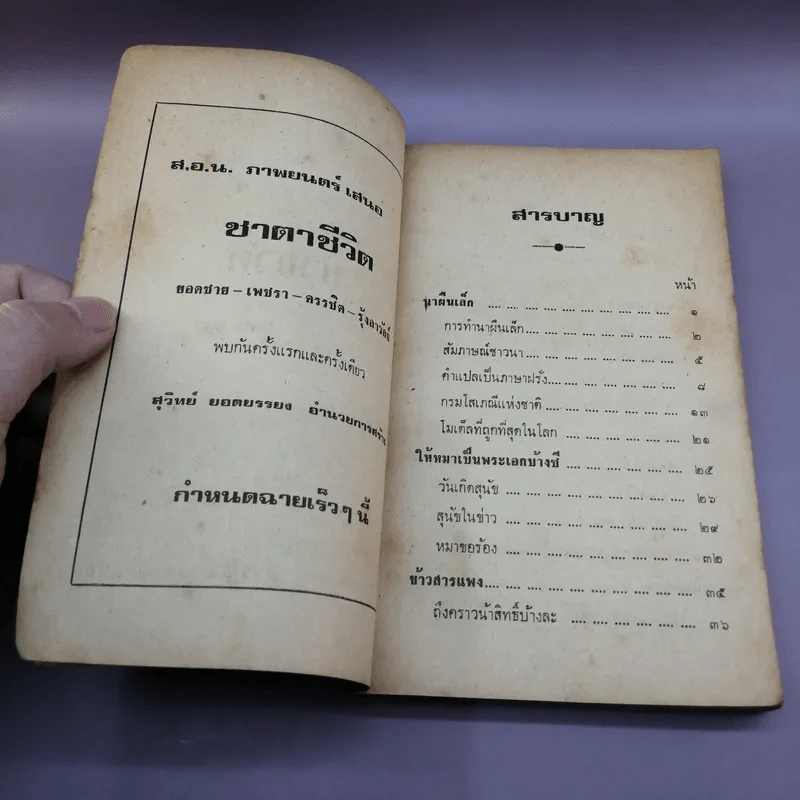 ส.อ.น. ภาพยนตร์ เสนอ
ชาตาชีวิต
ยอดชาย – เพชรา – ครรชิต – รุ้งลาวัลย์
พบกันครั้งแรกและครั้งเดียว
สุวิทย์ ยอดบรรยง อำนวยการสร้าง
กำหนดฉายเร็วๆ นี้
สารบาญ
หน้า
นาผืนเล็ก .... .... .... .... .... .... .... .... .... ๑
การทำนาผืนเล็ก.... .... .... .... .... .... .... ๒
สัมภาษณ์ชาวนา.... .... .... .... .... .... .... ๕
คำแปลเป็นภาษาฝรั่ง.... .... .... .... .... .... ๘
กรมโสเภณีแห่งชาติ.... .... .... .... .... .... ๑๓
โมเต็ลที่ถูกที่สุดในโลก .... .... .... .... .... .... ๒๑
ให้หมาเป็นพระเอกบ้างซี .... .... .... .... .... .... ๒๕
วันเกิดสุนัข .... .... .... .... .... .... .... .... ๒๖
สุนัขในข่าว .... .... .... .... .... .... .... .... ๒๙
หมาขอร้อง .... .... .... .... .... .... .... .... ๓๒
ข้าวสารแพง.... .... .... .... .... .... .... .... .... ๓๕
ถึงคราวน้าสิทธิ์บ้างละ .... .... .... .... .... .... ๓๖